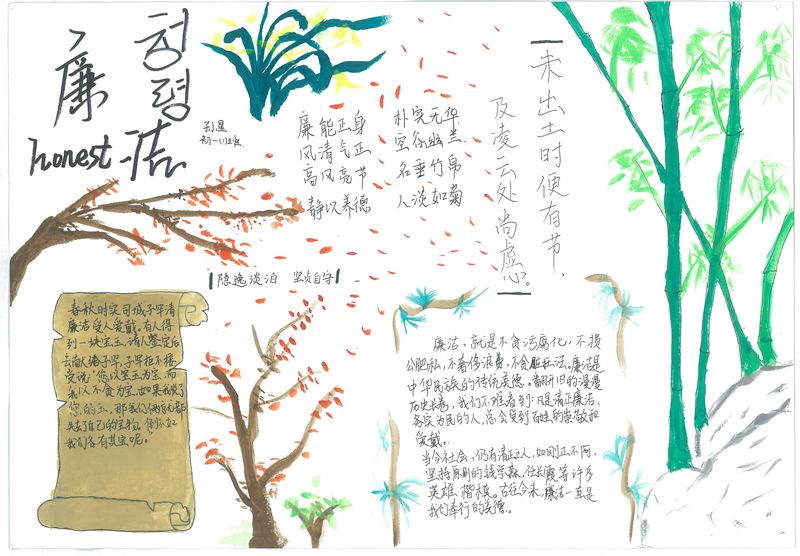 廉洁
honest
청렴
初一(1)班
廉能正身
风清气正
高风高节
静以养德
朴实无华
空谷幽兰
名垂竹帛
人淡如菊
未出土时便有节，
及凌云处尚虚心。
隐逸淡泊 坚贞自守
春秋时宋司城子罕清
廉洁受人爱戴。有人得
到一块宝玉，请人鉴定后
去献给子罕，子罕拒不接
受，说："您以宝玉为宝，而
我以不贪为宝。如果我收了
您的玉，那我们俩
失去了自己的宝物，倒不如
我们各有其宝呢。
廉洁，就是不贪污腐化，不损
公肥私，不奢侈浪费，不贪赃枉法。廉洁是
中华民族的传统美德。翻开旧的漫漫
历史长卷，我们不难看到：凡是清正廉洁、
务实为民的人，总会受到百姓的崇敬和
爱戴。
当今社会，仍有清正之人，如刚正不阿、
坚持原则的钱学森、任长霞等许多
英雄、楷模。古往今来，廉洁一直是
我们奉行的美德。